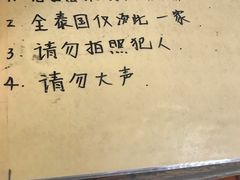 2. 全泰国仅此一家
3. 请勿拍照犯人
4. 请勿大声